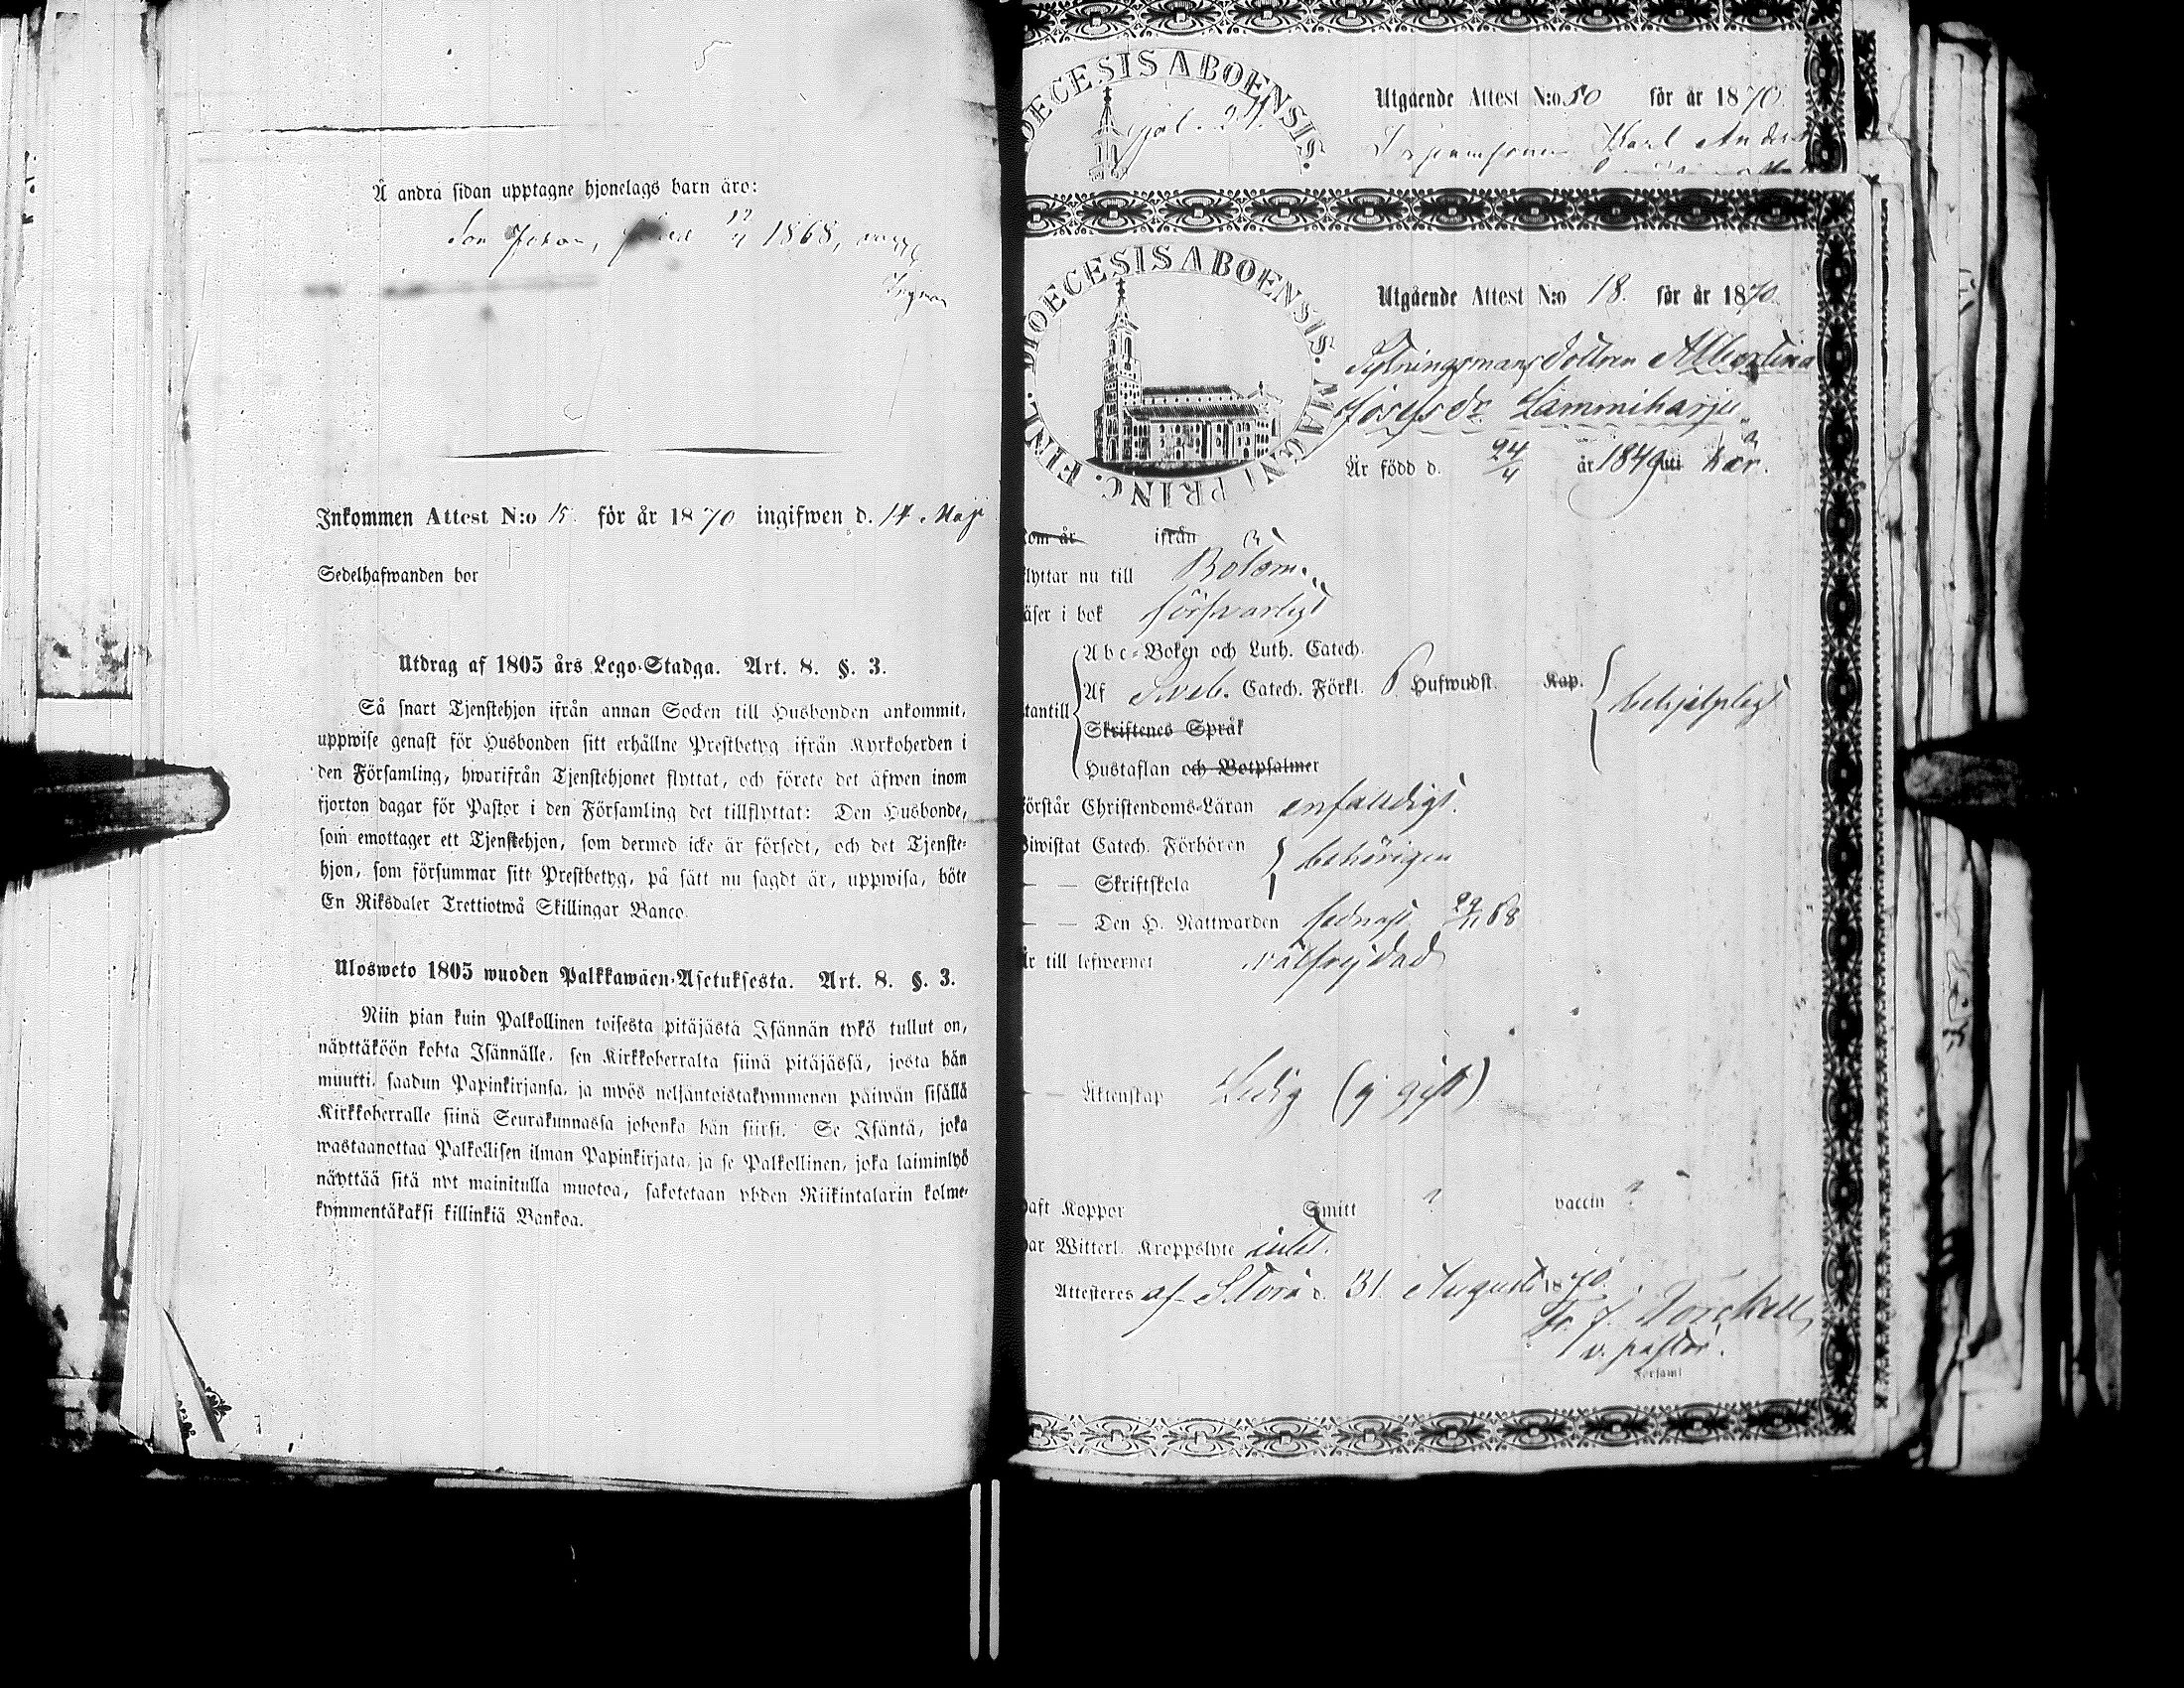 Å andra sidan upptagne hjonelags barn äro:
Son Johan, född 12/4 1868, vacc.
Ingman
Inkommen Attest N:o 15. för år 1870 ingifwen d. 14 Maji
Sedelhafwanden bor
Utdrag af 1805 års Lego-Stadga. Art. 8. §. 3.
Så snart Tjenstehjon ifrån annan Socken till Husbonden ankommit,
uppwise genast för Husbonden sitt erhållne Prestbetyg ifrån Kyrkoherden i
den Församling, hwarifrån Tjenstehjonet flyttat, och förete det äfwen inom
fjorton dagar för Pastor i den Församling det tillflyttat: Den Husbonde,
som emottager ett Tjenstehjon, som dermed icke är försedt, och det Tjenste-
hjon, som försummar sitt Prestbetyg, på sätt nu sagdt är, uppwisa, böte
En Riksdaler Trettiotwå Skillingar Banco.
Ulosweto 1805 wuoden Palkkawäen-Asetuksesta. Art. 8. §. 3.
Niin pian kuin Palkollinen toisesta pitäjästä Isännän tykö tullut on,
näyttäköön kohta Isännälle, sen Kirkkoherralta siinä pitäjässä, josta hän
muutti, saadun Papinkirjansa, ja myös neljäntoistakymmenen päiwän sisällä
Kirkkoherralle siinä Seurakunnassa johonka hän siirsi. Se Isäntä, joka
wastaanottaa Palkollisen ilman Papinkirjata, ja se Palkollinen, joka laiminlyö
näyttää sitä nyt mainitulla muotoa, sakotetaan yhden Riikintalarin kolme-
kymmentäkaksi killinkiä Bankoa.
OECESIS ABOENSIS.
Utgående Attest N:o 50 för år 1870.
Karl Anders
DIOECESIS ABOENSIS. MAGNI PRINC. FINL.
Utgående Attest N:o 18. för år 1870.
Sytningsmans dottren Albertina
Josefsdr Lammiharju
Är född d. 24/4 år 1849 uti här.
kom år ifrån
flyttar nu till Bötom.
läser i bok försvarligt
Abc-Boken och Luth. Catech.
utantill Af Sveb. Catech. Förkl. 6 Hufwudst. Kap. behjelpligt
Skriftenes Språk
Hustaflan och Botpsalmer
förstår Christendoms-Läran enfaldigt.
Biwistat Catech. Förhören behörigen
— — Skriftskola
— — Den H. Nattwarden sednast 29/11 68
Är till lefwernet välfrejdad
— — Äktenskap Ledig (ej gift)
haft Koppor Smitt ? vaccin ?
har Witterl. Kroppslyte intet.
Attesteres af Storå d. 31 Augusti 1870.
Fr. J. Norchell
v. pastor.
Församl